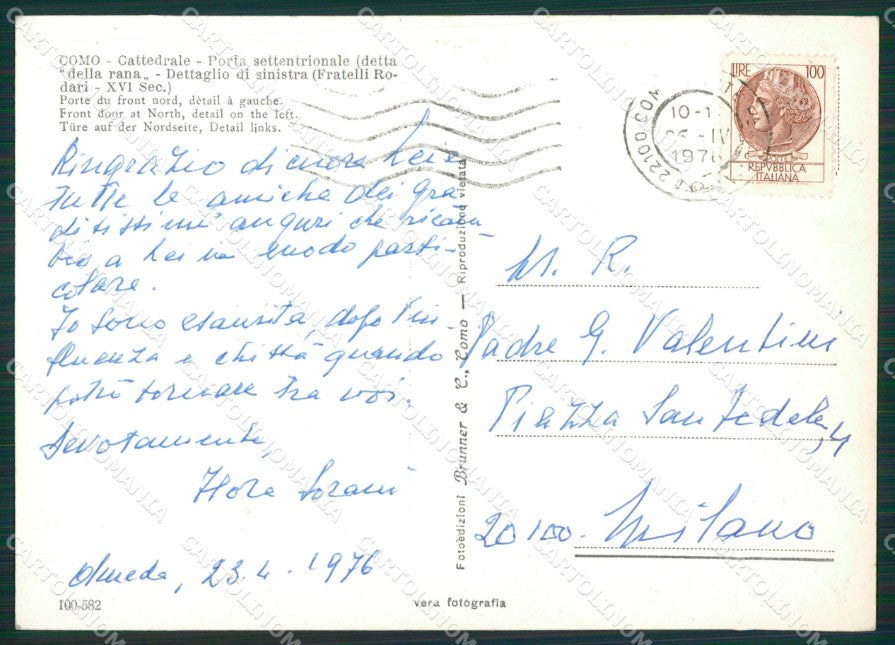 COMO - Cattedrale - Porta settentrionale (detta
"della rana„ - Dettaglio di sinistra (Fratelli Ro-
dari - XVI Sec.)
Porte du front nord, détail à gauche.
Front door at North, detail on the left.
Türe auf der Nordseite, Detail links.
Ringrazio di cuore Lei e
tutte le amiche dei gra
ditissimi auguri che ricam-
bio a Lei in modo parti-
colare.
Io sono esaurita, dopo l'in-
fluenza e chissà quando
potrò tornare tra voi.
Devotamente,
23.4.1976
100-582
vera fotografia
Fotoedizioni Brunner & C., Como — Riproduzione vietata
LIRE 100
REPVBBLICA
ITALIANA
22100 COM
10-1
IV
1976
M. R.
Padre G. Valentini
Piazza San Fedele, 4
20100. Milano
CARTOLINOMANIA